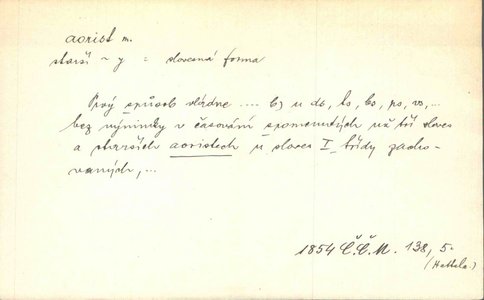 aorist m.
starší ~ y = slovesná forma
Prvý spůsob vládne .... b) u ds, ls, bs, ps, vs, ..
bez výnimky v časování spomenutých už tří sloves
a starších aoristech u sloves I třídy zacho-
vaných, ...
1854 Č.Č.M. 138, 5.
(Hattala.)